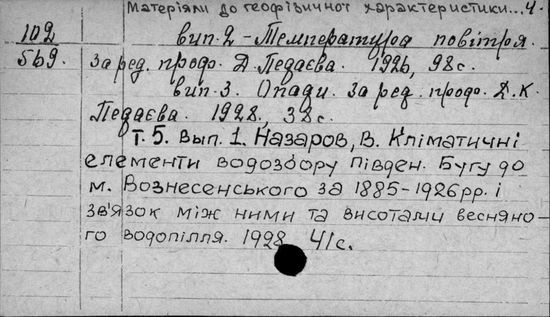 Матеріяли до геофізичної характеристики...ч.
102 вип.2 - Температура повітря.
569. За ред. проф. Д. Педаєва. 1926, 98с.
вип.3. Опади. За ред. проф. Д.К.
Педаєва. 1928, 38с.
т.5. Вып.1. Назаров, В. Кліматичні
елементи водозбору Півден. Бугу до
м. Вознесенського за 1885-1926рр. і
зв'язок між ними та висотами весняно-
го водопілля. 1928 41с.